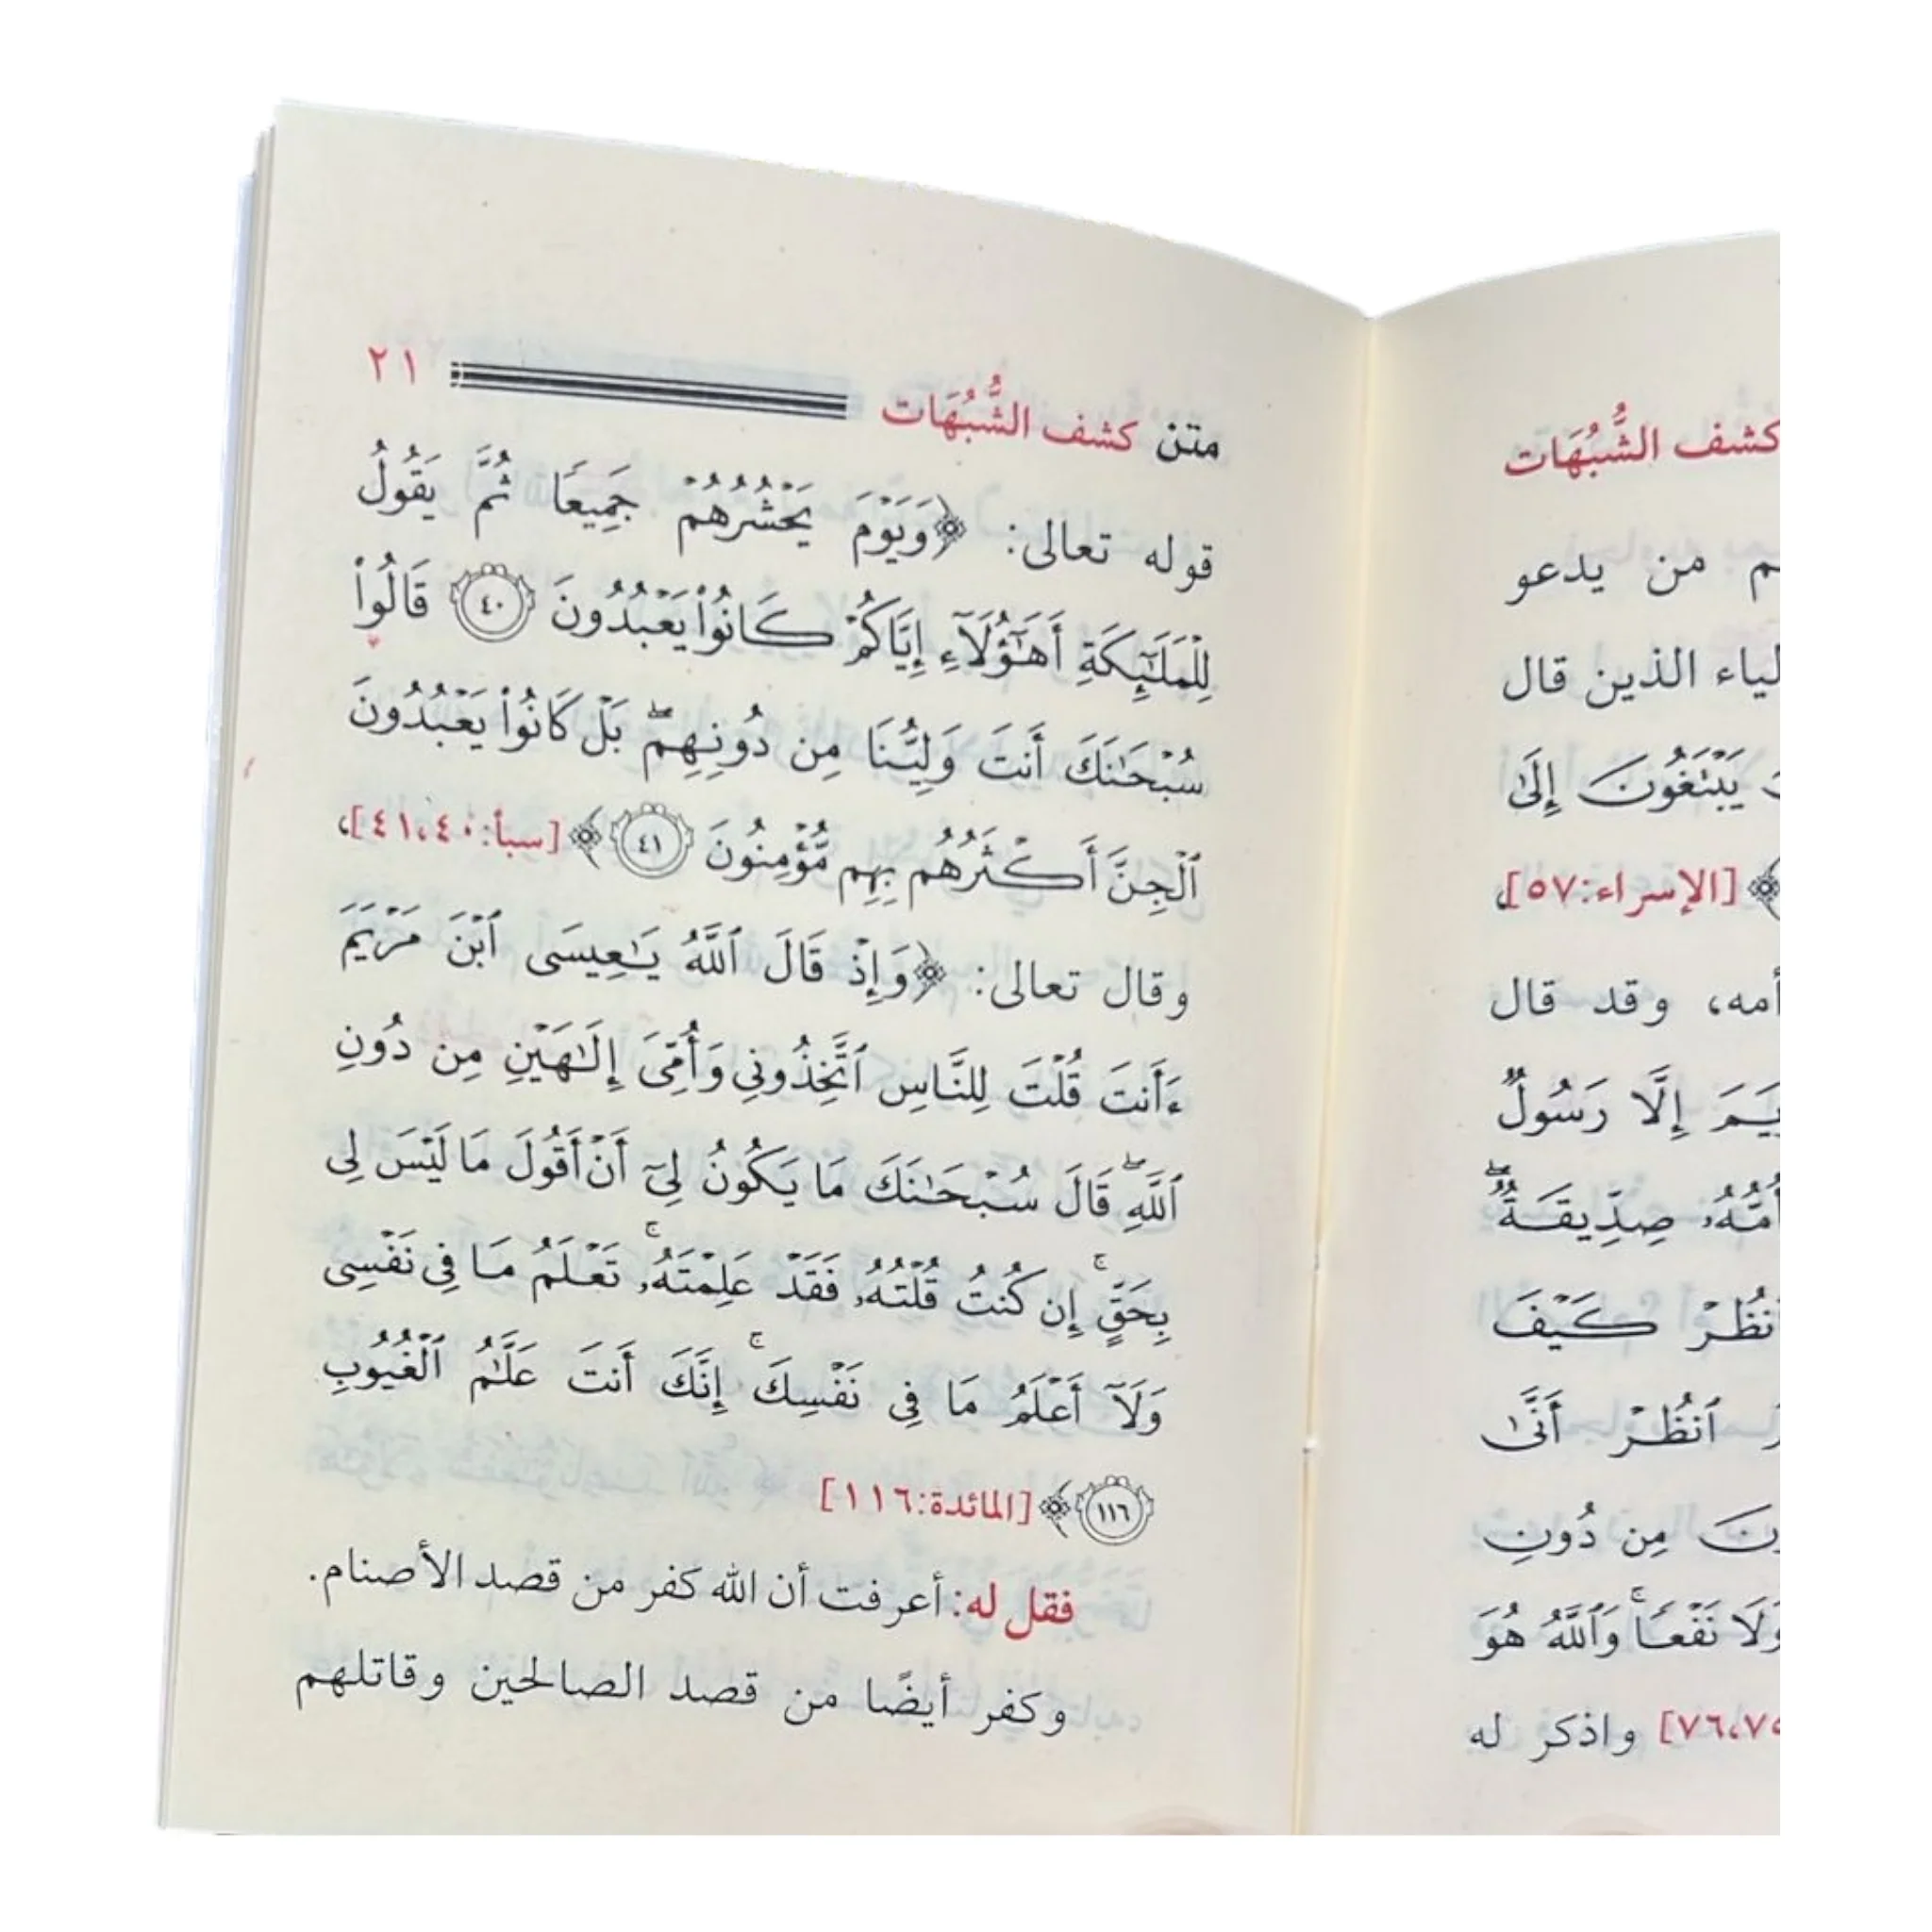 كشف الشُّبُهَات
من يدعو
الذين قال
يَبْتَغُونَ إِلَىٰ
﴾ [الإسراء:٥٧]،
أمه، وقد قال
إِلَّا رَسُولٌ
صِدِّيقَةٌۖ
كَيْفَ
ٱنظُرْ أَنَّىٰ
مِن دُونِ
وَلَا نَفْعًاۚ وَٱللَّهُ هُوَ
واذكر له
متن كشف الشُّبُهَات ٢١
قوله تعالى: ﴿وَيَوْمَ يَحْشُرُهُمْ جَمِيعًا ثُمَّ يَقُولُ
لِلْمَلَٰٓئِكَةِ أَهَٰٓؤُلَآءِ إِيَّاكُمْ كَانُوا۟ يَعْبُدُونَ ٤٠ قَالُوا۟
سُبْحَٰنَكَ أَنتَ وَلِيُّنَا مِن دُونِهِمۖ بَلْ كَانُوا۟ يَعْبُدُونَ
ٱلْجِنَّ أَكْثَرُهُم بِهِم مُّؤْمِنُونَ ٤١﴾ [سبأ:٤١،٤٠]،
وقال تعالى: ﴿وَإِذْ قَالَ ٱللَّهُ يَٰعِيسَى ٱبْنَ مَرْيَمَ
ءَأَنتَ قُلْتَ لِلنَّاسِ ٱتَّخِذُونِى وَأُمِّىَ إِلَٰهَيْنِ مِن دُونِ
ٱللَّهِۖ قَالَ سُبْحَٰنَكَ مَا يَكُونُ لِىٓ أَنْ أَقُولَ مَا لَيْسَ لِى
بِحَقٍّۚ إِن كُنتُ قُلْتُهُۥ فَقَدْ عَلِمْتَهُۥۚ تَعْلَمُ مَا فِى نَفْسِى
وَلَآ أَعْلَمُ مَا فِى نَفْسِكَۚ إِنَّكَ أَنتَ عَلَّٰمُ ٱلْغُيُوبِ
١١٦﴾ [المائدة:١١٦]
فقل له: أعرفت أن الله كفر من قصد الأصنام.
وكفر أيضًا من قصد الصالحين وقاتلهم